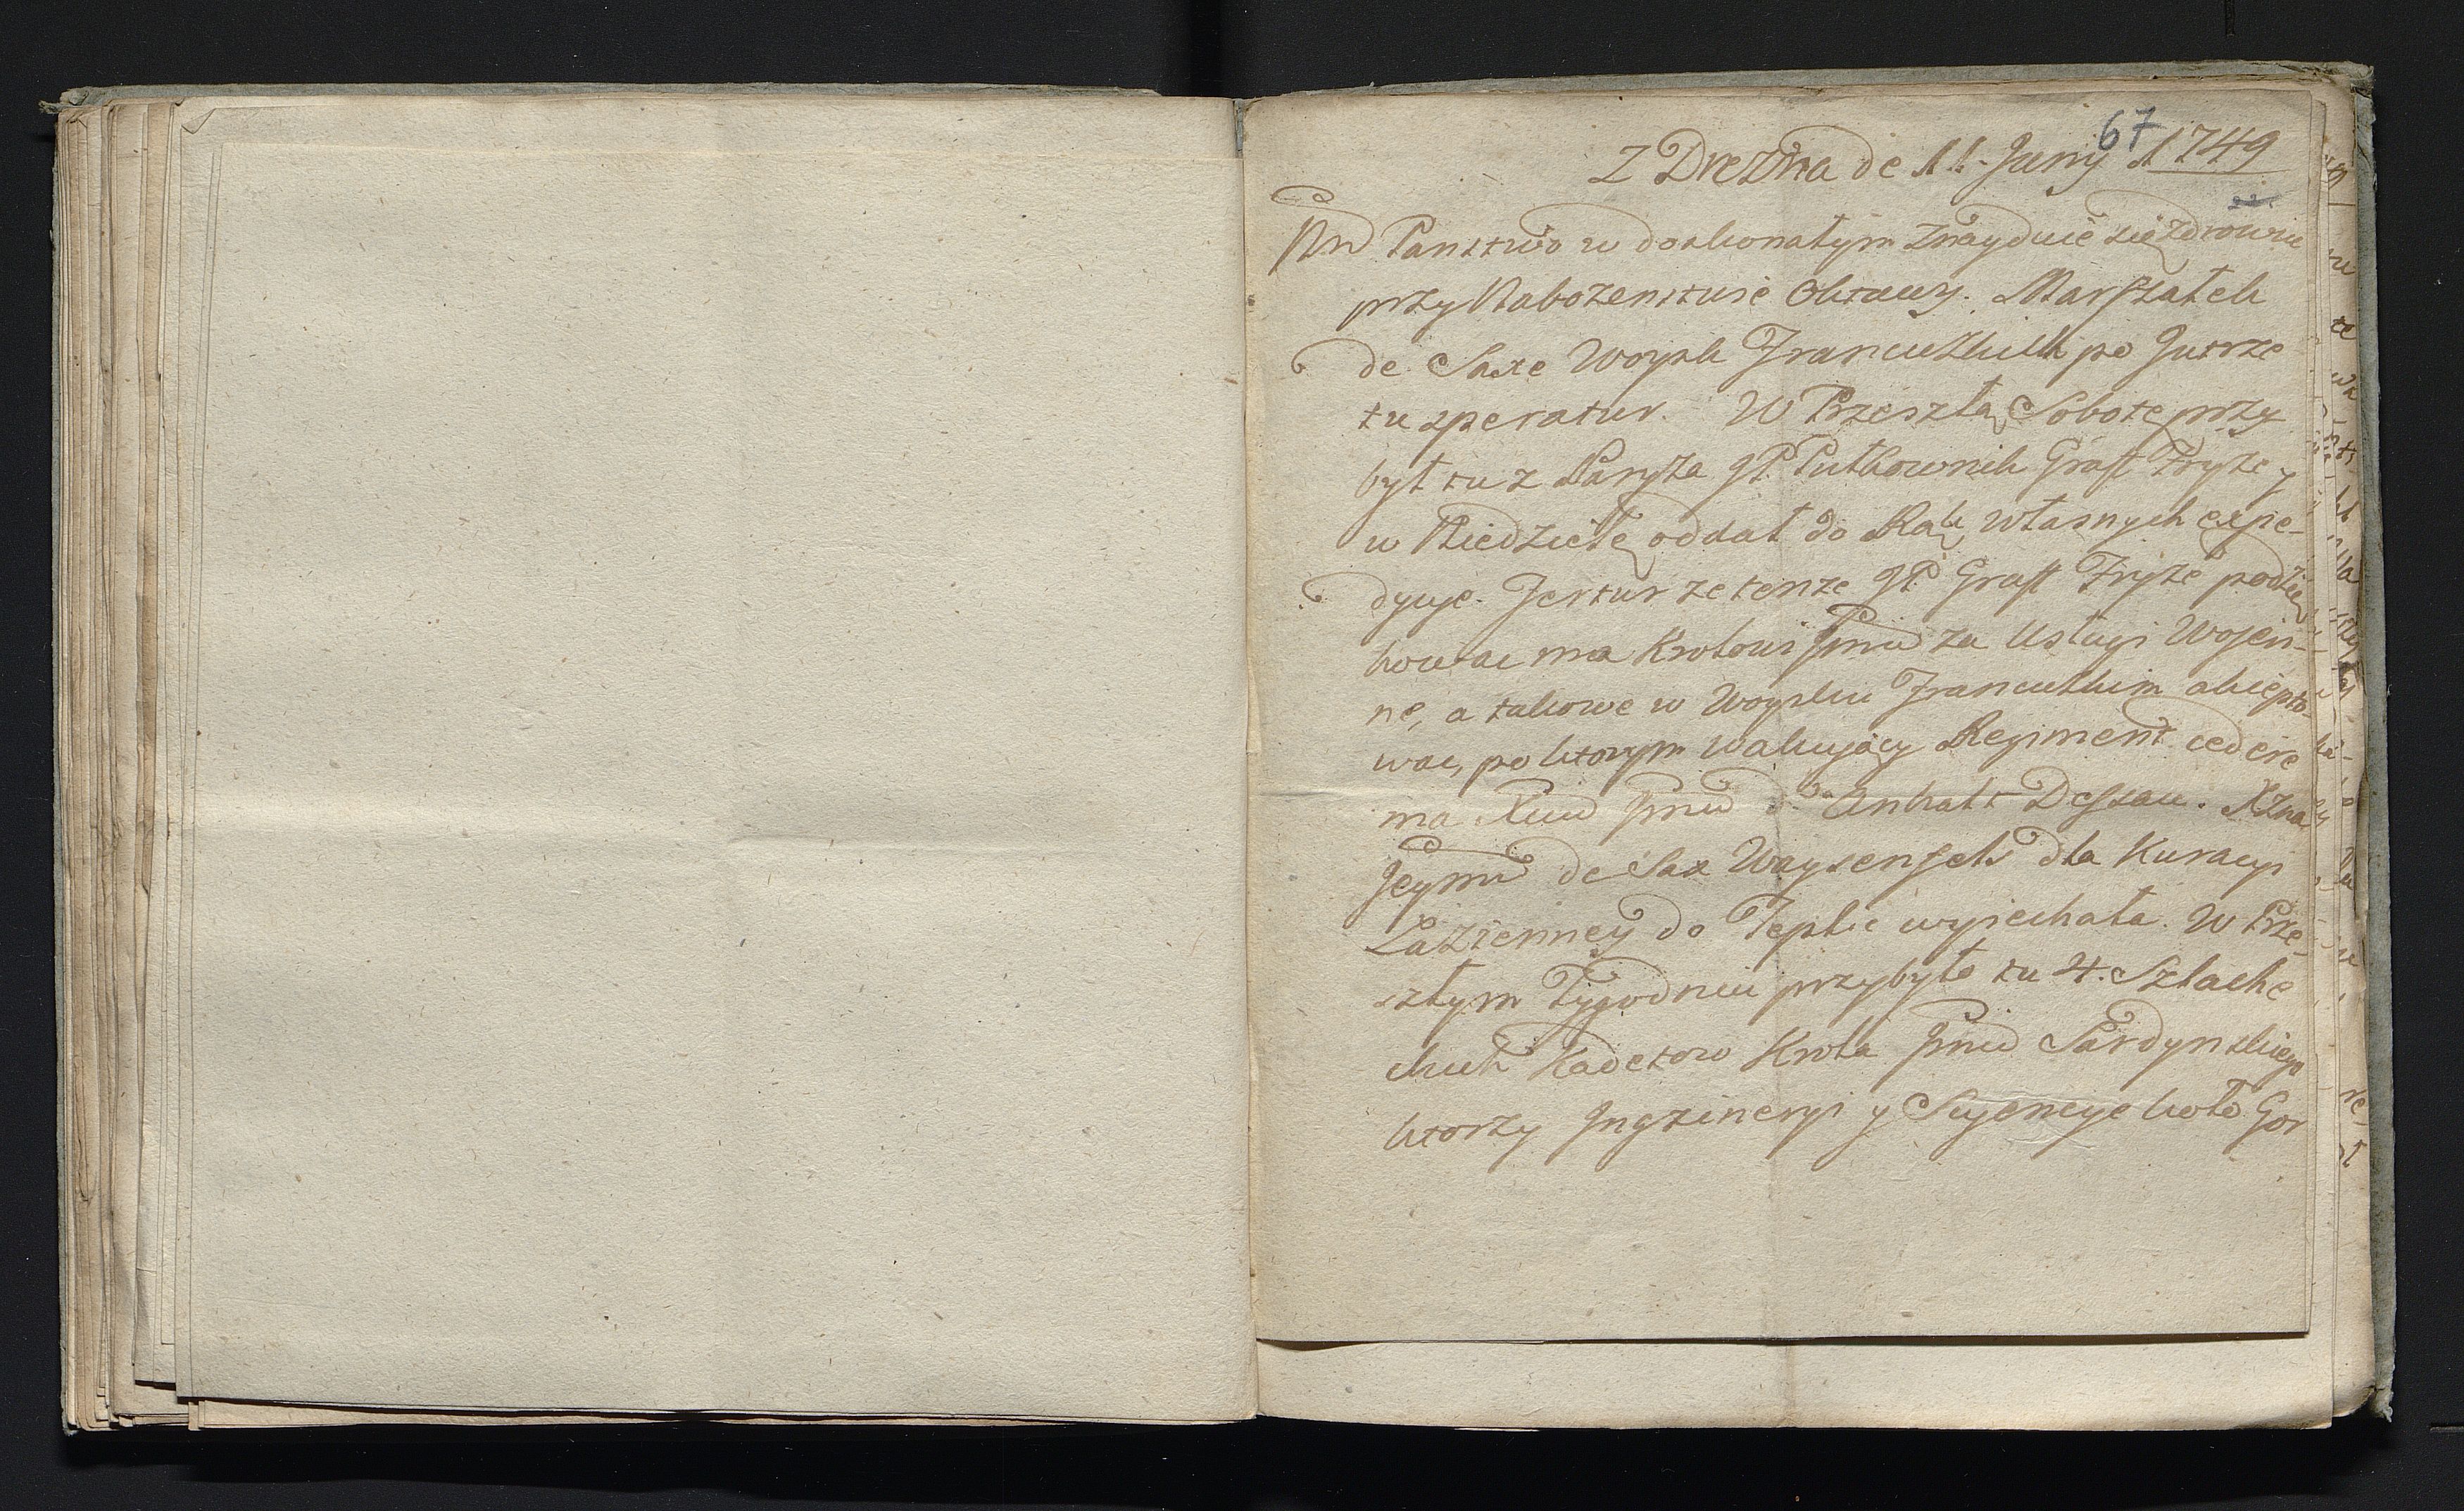 67
Z Drezna de 11. Juny 1749
Nñ Panstwo w doskonałym znayduie się zdrowiu
przy Nabozenstwie Oktawy. Marszałek
de Saxe Woysk Francuzkich po Jutrze
tu speratur. W Przeszłą Sobotę przy
był tu z Paryża JP Pułkownik Graff Fryze y
w Niedzielę oddał do Rąk własnych expe-
dycye. Fertur ze tenze JP Graff Fryze podzię
kowac ma Krolowi Jmci za Usługi Wojen-
ne, a takowe w Woysku Francuzkim akcepto-
wac, po ktorym wakujący Regiment cedere
ma Xciu Jmci d' Anhalt Dessau. Xżna
Jeymć de Sax Waysenfels dla Kuracyi
Łazienney do Teplic wyiechała. W Prze-
szłym Tygodniu przybyło tu 4. Szlache
ckich Kadetow Krola Jmci Sardynskiego
ktorzy Ingzineryi y Scyencye koło Gor